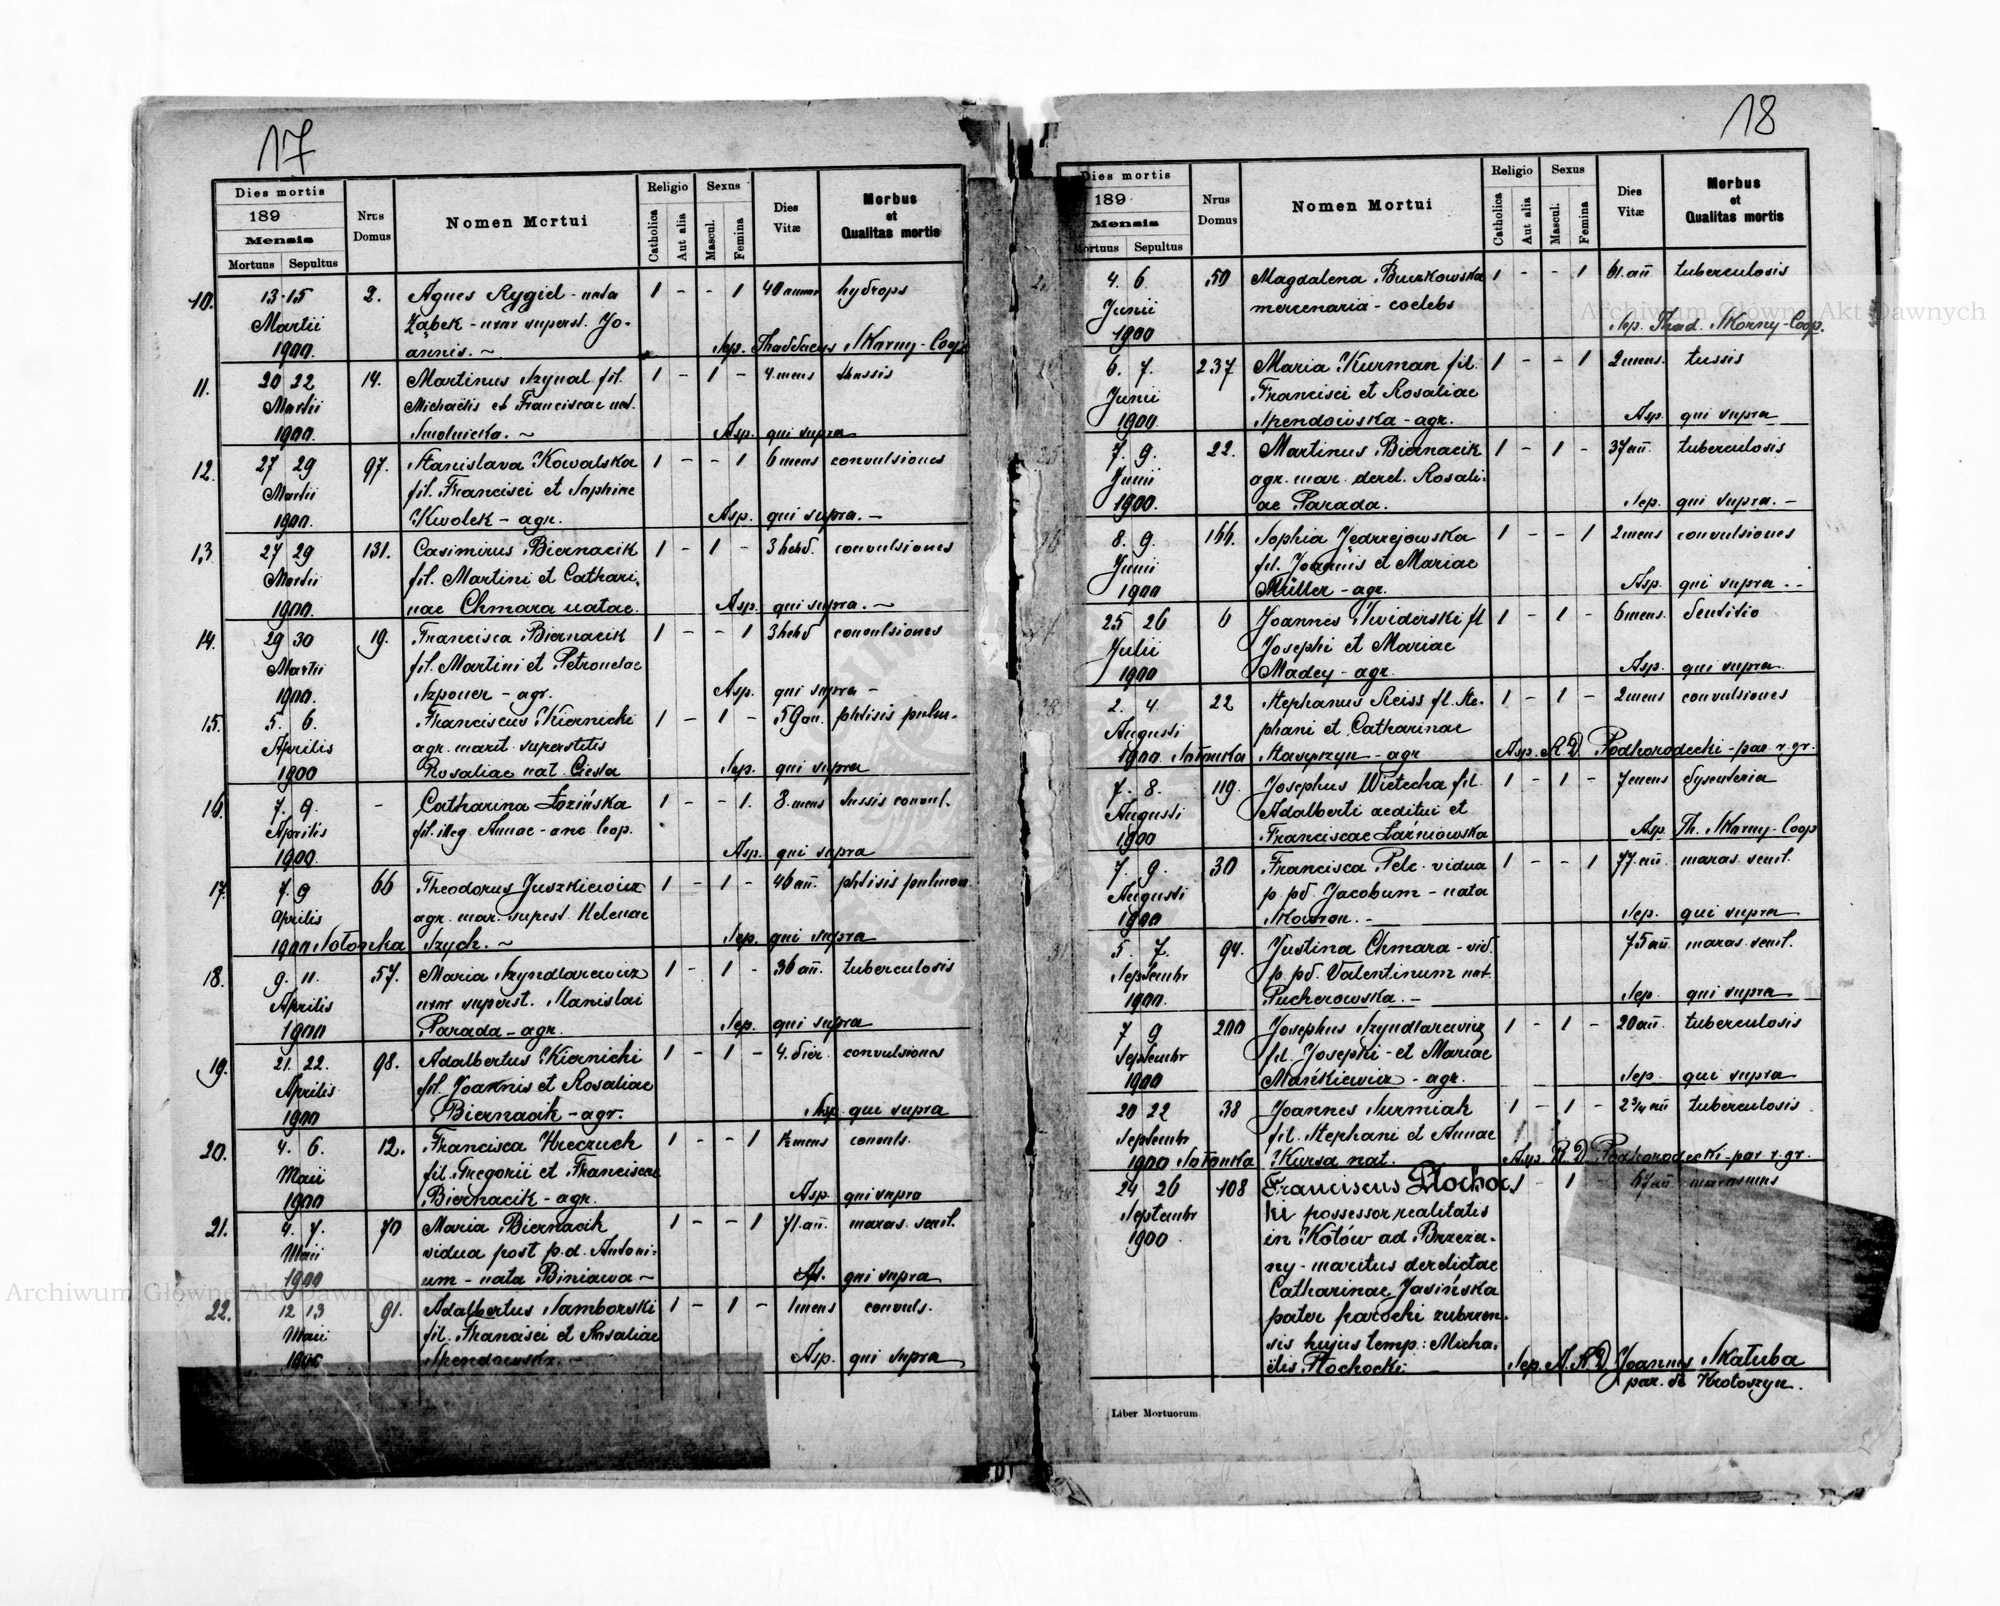 17
Dies mortis
189
Mensis
Mortuus Sepultus
Nrus Domus
Nomen Mortui
Religio
Catholica
Aut alia
Sexus
Mascul.
Femina
Dies Vitæ
Morbus et Qualitas mortis
10. 13 15 2. Agnes Rygiel - nata 1 - - 1 40 annor hydrops
Martii Ząbek - uxor superst. Jo-
1900. annis. ~ Sep. Thaddaeus Skarny - Coop.
11. 20 22 14. Martinus Szynal fil. 1 - 1 - 4. mens tussis
Martii Michaelis et Franciscae nat.
1900. Smolnicka. ~ Asp. qui supra
12. 27 29 97. Stanislava Kowalska 1 - - 1 6 mens convulsiones
Martii fil. Francisci et Sophiae
1900. Kwolek - agr. Asp. qui supra. -
13 27 29 131. Casimirus Biernacik 1 - 1 - 3 hebd. convulsiones
Martii fil. Martini et Cathari-
1900. nae Chmara natae. Asp. qui supra. ~
14. 29 30 19. Francisca Biernacik 1 - - 1 3 hebd convulsiones
Martii fil. Martini et Petronelae
1900. Szponer - agr. Asp. qui supra -
15. 5. 6. Franciscus Kiernicki 1 - 1 - 59 an. phtisis pulm.
Aprilis agr. marit. superstitis
1900 Rosaliae nat. Ciesla Sep. qui supra
16. 7. 9. - Catharina Łozińska 1 - - 1. 8. mens tussis convul.
Aprilis fil. illeg. Annae - anc
1900. Asp. qui supra
17. 7. 9 66 Theodorus Juszkiewicz 1 - 1 - 46 añ. phtisis pulmon
Aprilis agr. mar. superst. Helenae
1900 Sołonka Szych. ~ Sep. qui supra
18. 9. 11. 57. Maria Szyndlarewicz 1 - 1 - 36 añ. tuberculosis
Aprilis uxor superst. Stanislai
1900 Parada - agr. Sep. qui supra
19. 21. 22. 98. Adalbertus Kiernicki 1 - 1 - 4. dier. convulsiones
Aprilis fil. Joannis et Rosaliae
1900 Biernacik - agr. Asp. qui supra
20. 4. 6. 12. Francisca Kreczuch 1 - - 1 1½ mens convuls.
Maii fil. Gregorii et Franciscae
1900 Biernacik - agr. Asp. qui supra
21. 4. 7. 70 Maria Biernacik 1 - - 1 71. añ. maras. senil.
Maii vidua post p.d. Antoni-
1900 um - nata Biniawa ~ qui supra
22. 12 13 91. Adalbertus Samborski 1 - 1 - 1 mens convuls.
Maii fil. Francisci et Rosaliae
1900 Spendowska. - Asp. qui supra
18
Dies mortis
189
Mensis
Mortuus Sepultus
Nrus Domus
Nomen Mortui
Religio
Catholica
Aut alia
Sexus
Mascul.
Femina
Dies Vitæ
Morbus et Qualitas mortis
4. 6. 50 Magdalena Buczkowska 1 - - 1 61. añ tuberculosis
Junii mercenaria - coelebs
1900 Sep. Thad. Skorny - Coop.
6. 7. 237 Maria Kurman fil. 1 - - 1 2 mens. tussis
Junii Francisci et Rosaliae
1900. Spendowska - agr. Asp. qui supra
7. 9. 22. Martinus Biernacik 1 - 1 - 37 añ. tuberculosis
Junii agr. mar. derel. Rosali-
1900. ae Parada. Sep. qui supra. -
8. 9. 166. Sophia Jędrzejowska 1 - - 1 2 mens convulsiones
Junii fil. Joannis et Mariae
1900 Müller - agr. Asp. qui supra. -
25 26 6 Joannes Swiderski fil 1 - 1 - 6 mens. dentitio
Julii Josephi et Mariae
1900 Madey - agr. Asp. qui supra
2. 4. 22 Stephanus Reiss fil. Ste- 1 - 1 - 2 mens convulsiones
Augusti phani et Catharinae
1900. Sołonka agr Asp. R D Podhorodecki - par. r. gr.
7. 8. 119. Josephus Wietecha fil. 1 - 1 - 7 mens dysenteria
Augusti Adalberti aeditui et
1900 Franciscae Łaźniowska Asp. Th. Skarny - Coop
7. 9. 30 Francisca Pelc - vidua 1 - - 1 77. añ. maras. senil.
Augusti p. pd. Jacobum - nata
1900 Skowron. - Sep. qui supra
5. 7. 94. Justina Chmara - vid. 75 añ. maras. senil.
Septembr p. pd. Valentinum nat.
1900. Pucherowska. - Sep. qui supra
7 9 200 Josephus Szyndlarewicz 1 - 1 - 20 añ. tuberculosis
Septembr fil. Josephi - et Mariae
1900 Mańkiewicz - agr. Sep. qui supra
20 22 38 Joannes Surmiak 1 - 1 - 2 ¾ añ tuberculosis
Septembr fil. Stephani et Annae
1900 Sołonka Kursa nat. Asp. R. D. Podhorodecki - par. r. gr.
24 26 108 Franciscus Płochoc 1 - 1 - 67 añ marasmus
Septembr ki possessor realitatis
1900. in Kotów ad Brzeża-
ny - maritus derelictae
Catharinae Jasińska
pater parochi zubrzen-
sis hujus temp: Micha-
elis Płochocki. Sep. A. R D Joannes Skałuba
par. de Krotoszyn.
Liber Mortuorum
Archiwum Główne Akt Dawnych
Archiwum Główne Akt Dawnych